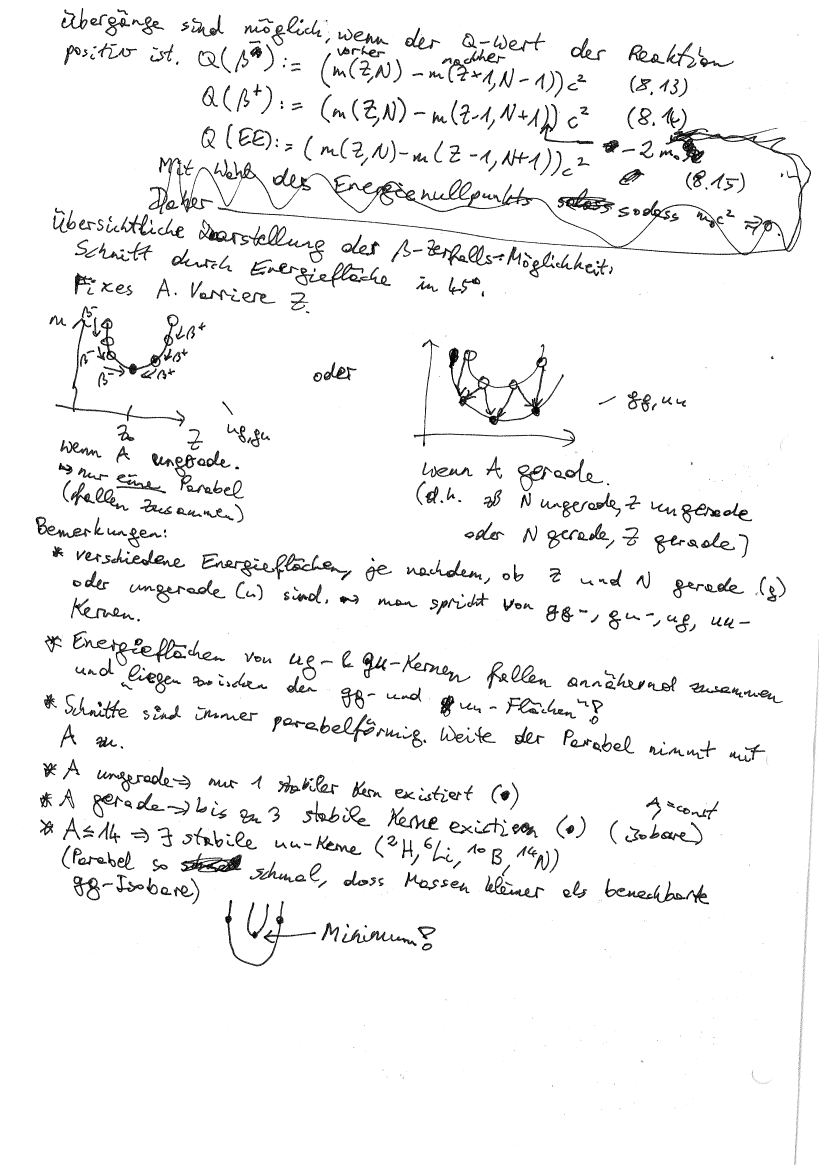 Übergänge sind möglich, wenn der Q-Wert der Reaktion
positiv ist.
vorher nachher
Q(β⁻) := (m(Z,N) - m(Z+1,N-1))c² (8.13)
Q(β⁺) := (m(Z,N) - m(Z-1,N+1)) c² (8.14)
- 2 m₀
Q(EE) := (m(Z,N) - m(Z-1,N+1))c² (8.15)
Mit Wahl des Energienullpunkts sodass m₀c² => 0.
Daher
Übersichtliche Darstellung der β-Zerfalls-Möglichkeit:
Schnitt durch Energiefläche in 45°.
Fixes A. Varriere Z.
m β⁻ β⁺
β⁻ β⁺
β⁻ β⁺
oder
gg, uu
Z₀ Z ug, gu
wenn A ungerade.
⇝ nur eine Parabel
(fallen zusammen)
wenn A gerade.
(d.h. zB N ungerade, Z ungerade
oder N gerade, Z gerade)
Bemerkungen:
* verschiedene Energieflächen, je nachdem, ob Z und N gerade (g)
oder ungerade (u) sind. ⇝ man spricht von gg-, gu-, ug, uu-
Kernen.
* Energieflächen von ug- & gu-Kernen fallen annähernd zusammen
und liegen zwischen den gg- und uu-Flächen!
* Schnitte sind immer parabelförmig. Weite der Parabel nimmt mit
A zu.
* A ungerade => nur 1 stabiler Kern existiert (•)
* A gerade => bis zu 3 stabile Kerne existieren (•) (isobare)
A = const
* A ≤ 14 => ∃ stabile uu-Kerne (²H, ⁶Li, ¹⁰B, ¹⁴N)
(Parabel so schmal, dass Massen kleiner als benachbarte
gg-Isobare)
Minimum!